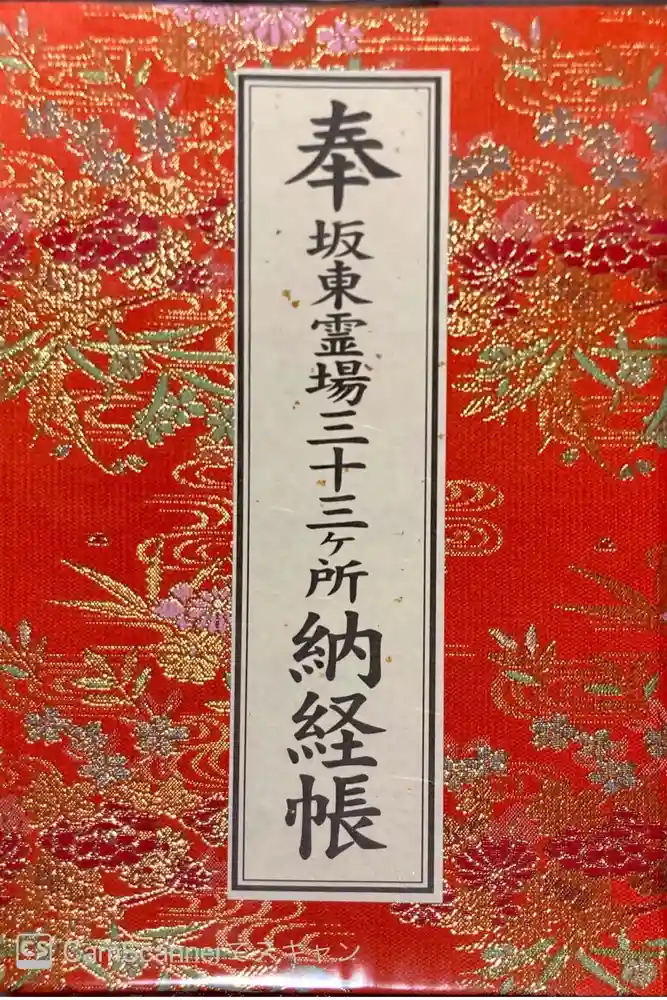 奉坂東霊場三十三ヶ所納経帳
CS CamScannerでスキャン